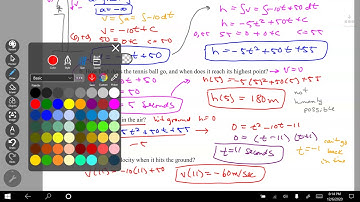 a = -10
v = ∫a = ∫-10 dt
v = -10t + C
0,50 50 = 0 + C C = 50
50t + 50
h = ∫v = ∫-10t + 50 dt
h = -5t² + 50t + C
0,55 55 = 0 + 0 + C C = 55
h = -5t² + 50t + 55
the tennis ball go, and when does it reach its highest point? → v = 0
+ 50
h(5) = -5(5)² + 50(5) + 55
5 seconds
h(5) = 180m
not humanly possible
in the air? hit ground h = 0
5t² + 50t + 55
-5
0 = t² - 10t - 11
0 = (t - 11)(t + 1)
t = 11 seconds t = -1
back in time
velocity when it hits the ground?
v(11) = -10(11) + 50 v(11) = -60 m/sec
Basic
8:14 PM
12/6/2020